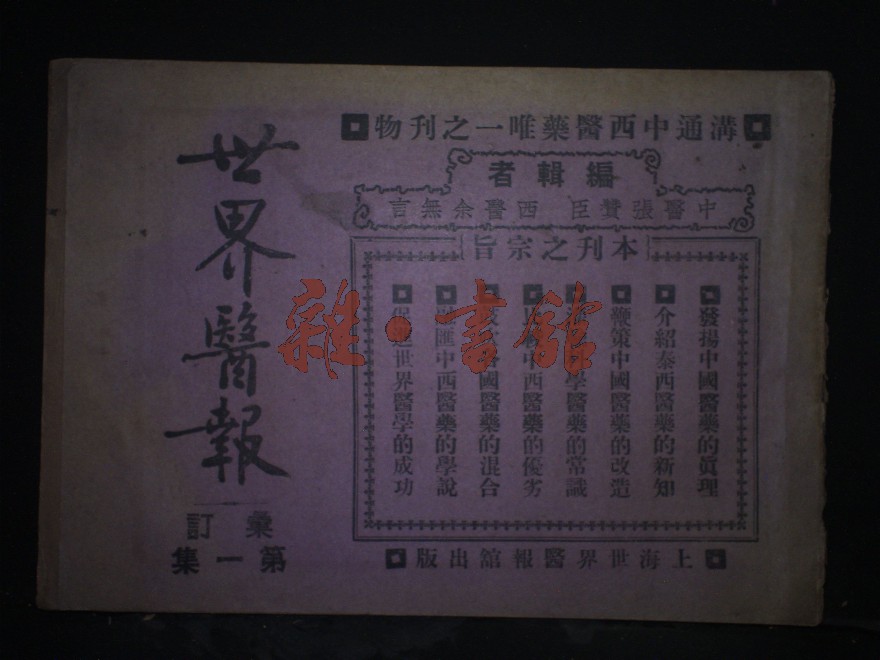 溝通中西醫藥唯一之刊物
編輯者
中醫張贊臣 西醫余無言
本刊之宗旨
發揚中國醫藥的眞理
介紹泰西醫藥的新知
鞭策中國醫藥的改造
學醫藥的常識
中西醫藥的優劣
國醫藥的混合
匯中西醫藥的學說
促進世界醫學的成功
上海世界醫報館出版
世界醫報
彙訂
第一集
雜·書館